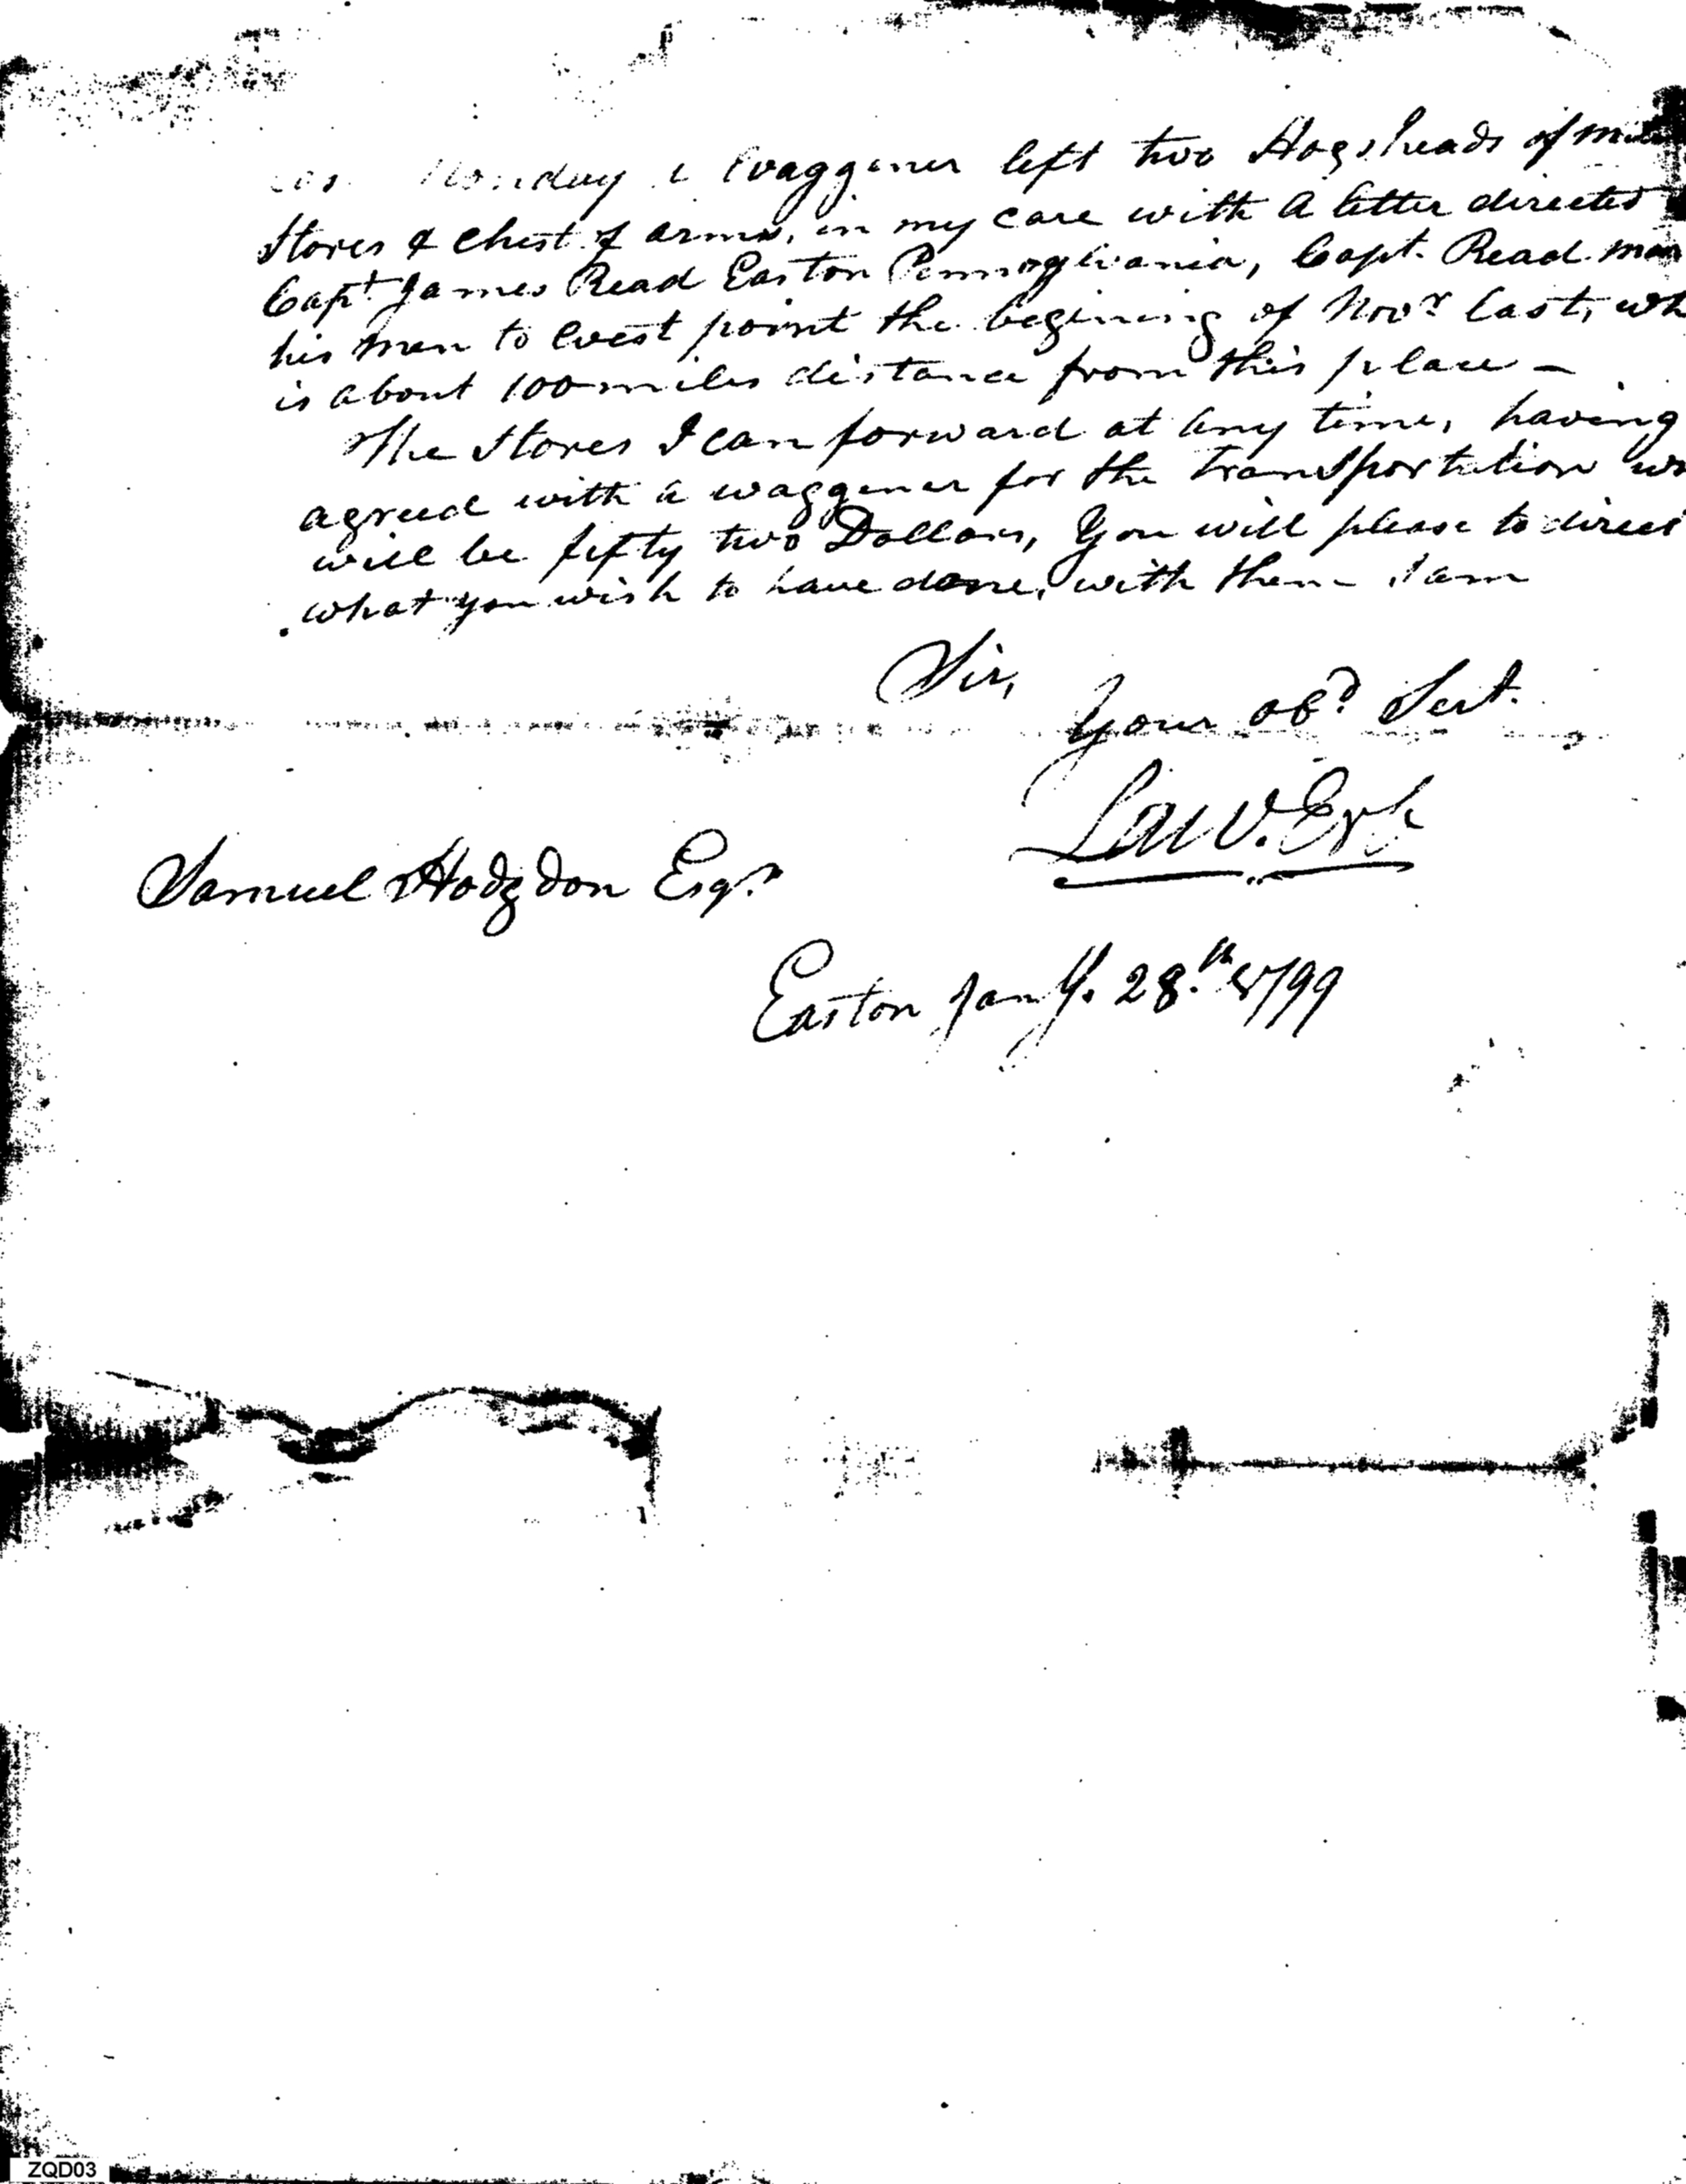 Monday a Waggener left two Hogsheads of
Stores & Chest of arms, in my care with a letter directed
Capt. James Read Easton Pennsylvania, Capt. Read
his men to West point the begining of Novr. last,
is about 100 miles distance from this place –
The Stores I can forward at any time, having
agreed with a waggener for the transportation
will be fifty two Dollars, You will please to direct
what you wish to have done, with them I am
Sir,
Your obd. Sert.
Samuel Hodgdon Esqr.
Easton Jany. 28.th 1799
ZQD03